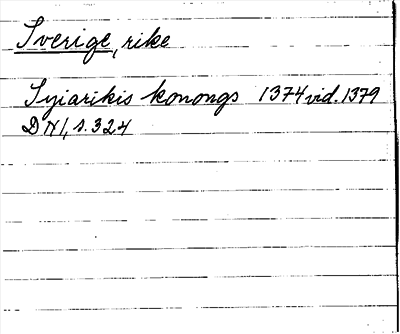 Sverige, rike
Syiarikis konongs 1374 vid. 1379
DN 1, s. 324